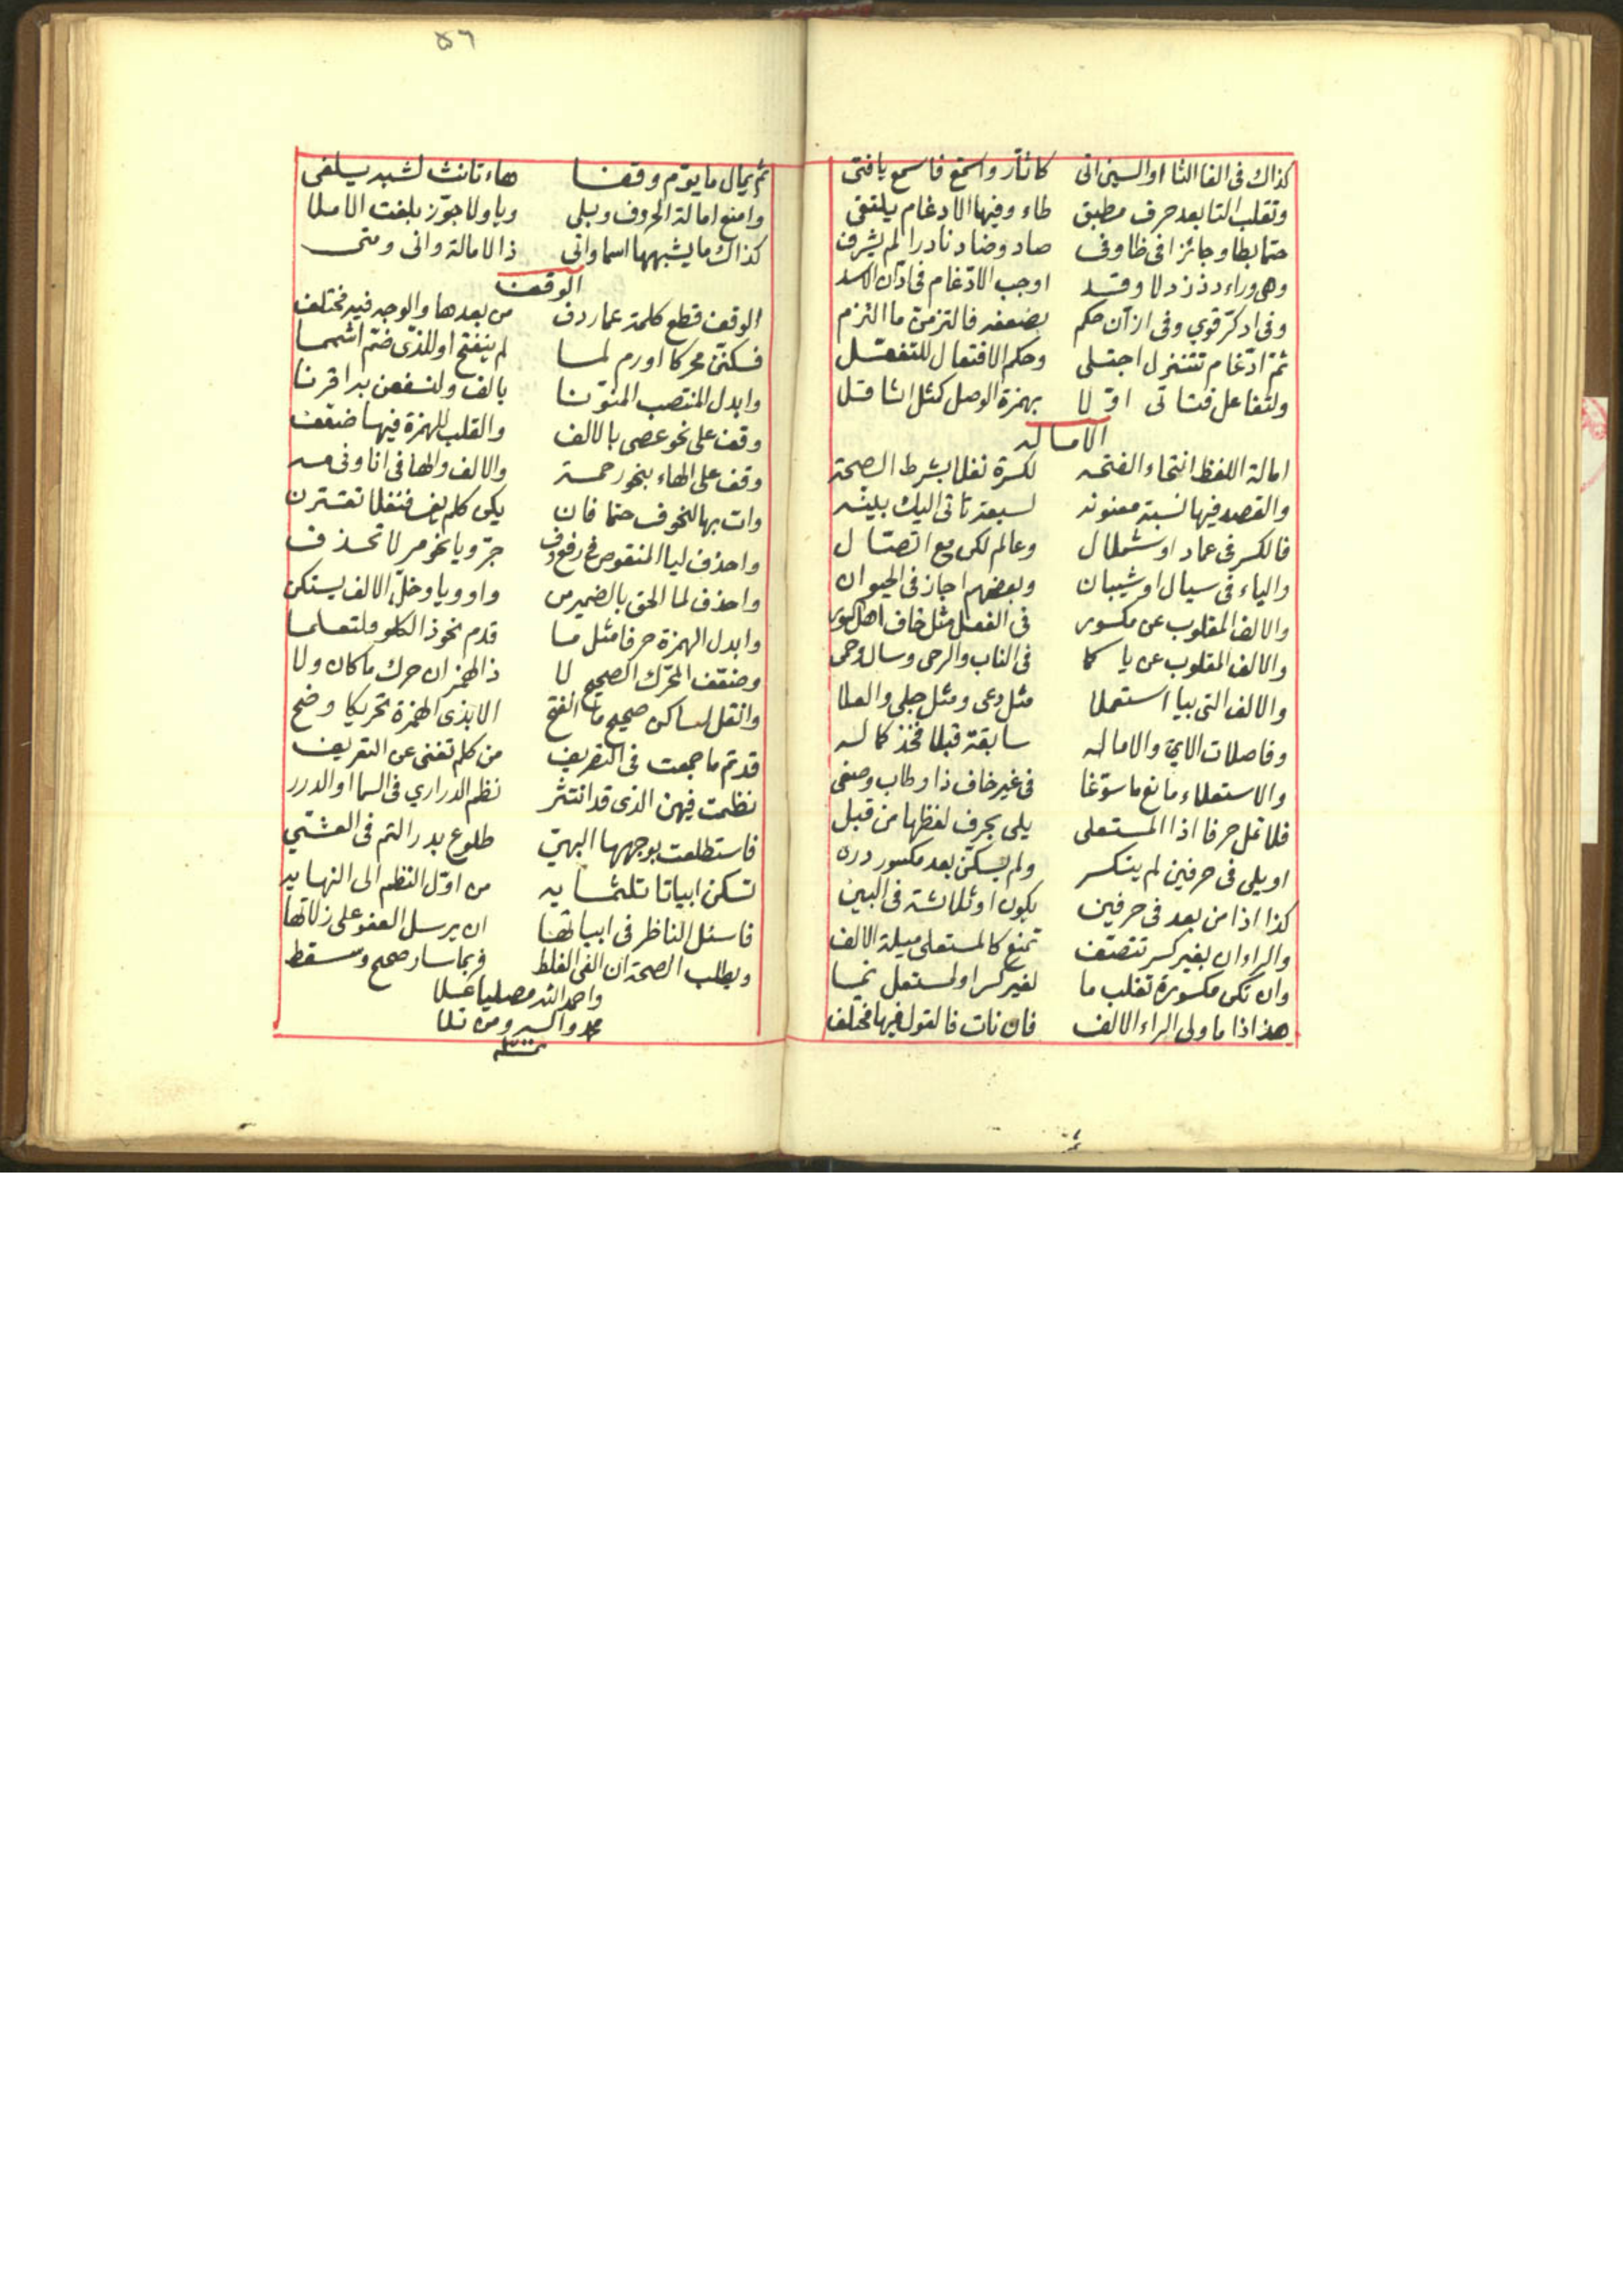 كذاك فى الفا الثا او السين اتى كاثأر واسمع فاسمع يا فتى
وتقلب التا بعد حرف مطبق طاء وفيها الادغام يلتقى
حتما بطا وجائزا فى ظا وفى صاد وضاد نادرا لم يشرف
وهى وراء دذز دالا وقد اوجب الادغام فى ادّان الاسد
وفى ادكر قوي وفى ازآن حكم بضعفه فالتزمن ما التزم
ثم ادغام تتنزل اجتلى وحكم الافتعال للتفعل
ولتفاعل فتاتى اوّلا بهمزة الوصل كمثل اثاقلا
الاماله
امالة اللفظ انتحاء الفتحه لكسرة نفلا بشرط الصحة
والقصد فيها نسبة معنونه لسبعة تاتى اليك بينه
فالكسر فى عماد او شملال وعالم لكن مع اتصال
والياء فى سيال او شيبان وبعضهم اجاز فى الحيوان
والالف المقلوب عن مكسور فى الفعل مثل خاف اهل
والالف المقلوب عن يا كما فى الناب والرحى وسال ورمى
والالف التى بيا استعملا مثل دعى ومثل حبلى والعلا
وفاصلات الاي والاماله سابقة قبلا فخذ كماله
والاستعلاء مانع ما سوّغا فى غير خاف ذا وطاب وصغى
فلا تمل حرفا اذا المستعلى يلى بحرف لفظها من قبل
او يلى فى حرفين لم ينكسر ولم يسكن بعد مكسور دره
كذا اذا من بعد فى حرفين يكون او ثلاثة فى البين
والراء ان بغير كسر تتصف تمنع كالمستعلى ميلة الالف
وان تكن مكسورة تغلب ما لغير كسر او لمستعل نما
هذا اذا ما ولى الراء الالف فان نات فالقول فيها مختلف
ثم
٥٦
ثم يمال ما يؤم وقفا هاء تانث لشبه يلفى
وامنع امالة الحروف وبلى ويا ولا جوز بلغت الاملا
كذاك ما يشبهها اسما واتى ذا الامالة وانى ومتى
الوقف
الوقف قطع كلمة عما ردف من بعدها والوجه فيه مختلف
فسكنن محركا اورم لما لم ينفتح او للذى ضم اشمما
وابدل المنتصب المنونا بالف ولنسفعن بدا قرنا
وقف على نحو عصى بالالف والقلب للهمزة فيها ضعف
وقف على الهاء بنحو رحمة والالف والها فى انا وفى مه
وات بها لنحو ف حتما فان يكن كلم يف فنفلا تقترن
واحذف ليا المنقوص فى رفع وفى جر ويا نحو مر لا تحذف
واحذف لما الحق بالضمير من واو ويا وخل الالف يستكن
وابدل الهمزة حرفا مثل ما قدم نحو ذا الكلو فلتعلما
وضعف المحرك الصحيح لا ذا الهمز ان حرك ما كان ولا
وانقل لساكن صحيح ما الفتح الا بذى الهمزة تحريكا وضح
قد تم ما جمعت فى التصريف من كلم تغنى عن التعريف
نظمت فيهن الذى قد انتثر نظم الدراري فى السما او الدرر
فاستطلعت بوجهها البهي طلوع بدر التم فى العشي
تسكن ابياتا ثلثمايه من اول النظم الى النهايه
فاسئل الناظر فى ابياتها ان يرسل العفو على زلاتها
ويطلب الصحة ان الفى الغلط فربما سار صحيح وسقط
واحمد الله مصليا على
محمد وآله ومن تلا
تمت